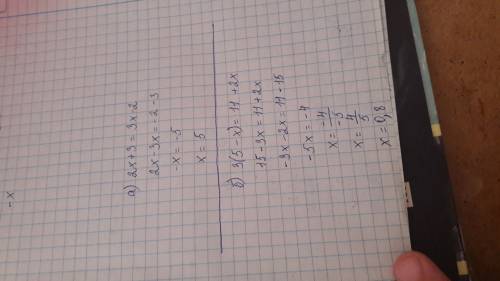 -x
а) 2x+3=3x-2
2x-3x=-2-3
-x=-5
x=5
б) 3(5-x)=11+2x
15-3x=11+2x
-3x-2x=11-15
-5x=-4
x=-4/-5
x=4/5
x=0,8